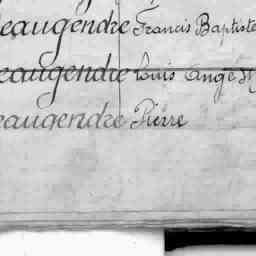 eaugendre Francis Baptiste
eaugendre Louis Ange
eaugendre Pierre